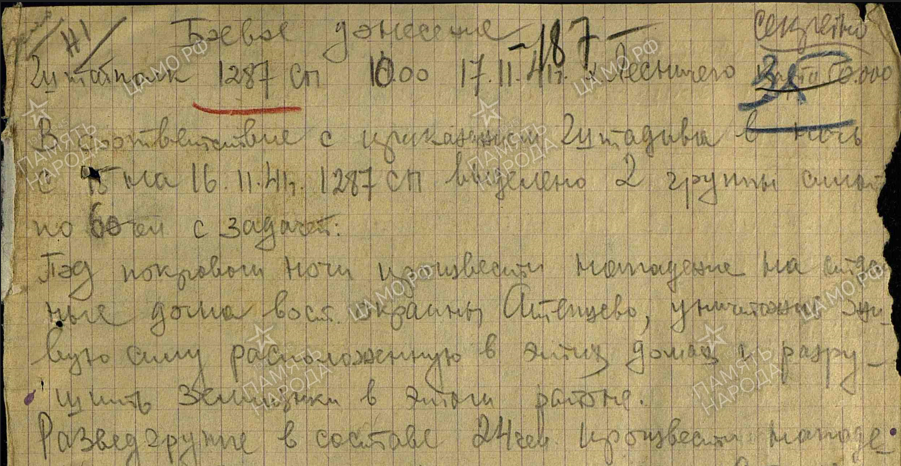 Секретно
№1 Боевое донесение -187-
2й штаполк 1287 СП 10 00 17.11.41г. х. Лесничего карта 50.000
В соответствие с приказанием 2й штадива в ночь
с 15 на 16.11.41г. 1287 СП выделено 2 группы
по 60 чел с задачей:
Под покровом ночи произвести нападение на отдель
ные дома вост. окраины Атепцево, уничтожив жи
вую силу расположенную в этих домах и разру-
шить землянки в этом районе.
Разведгруппе в составе 24 чел. произвести нападе-